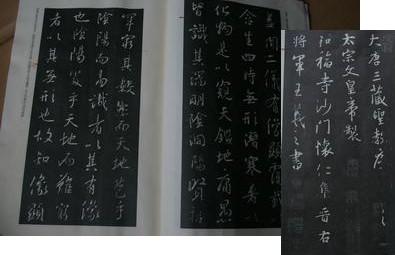 大唐三藏聖教序
太宗文皇帝製
弘福寺沙門懷仁集晉右
將軍王羲之書
蓋聞二儀有像顯覆載
含生四時無形潛寒暑以
化物是以窺天鑑地庸愚
皆識其端明陰洞陽賢哲
罕窮其數然而天地苞乎
陰陽而易識者以其有像
也陰陽處乎天地而難窮
者以其無形也故知像顯